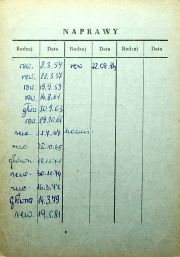 NAPRAWY
Rodzaj Data Rodzaj Data Rodzaj Data
rew. 8.3.54 rew 22.08.84
rew. 22.3.57
rew. 19.9.59
rew. 14.8.61
główn 30.9.63
rew. 29.10.65
rew. 11.7.67
rew. 25.10.69
główn 15.11.71
rew. 30.11.74
rew. 16.3.77
główna 14.3.79
rew. 19.5.81